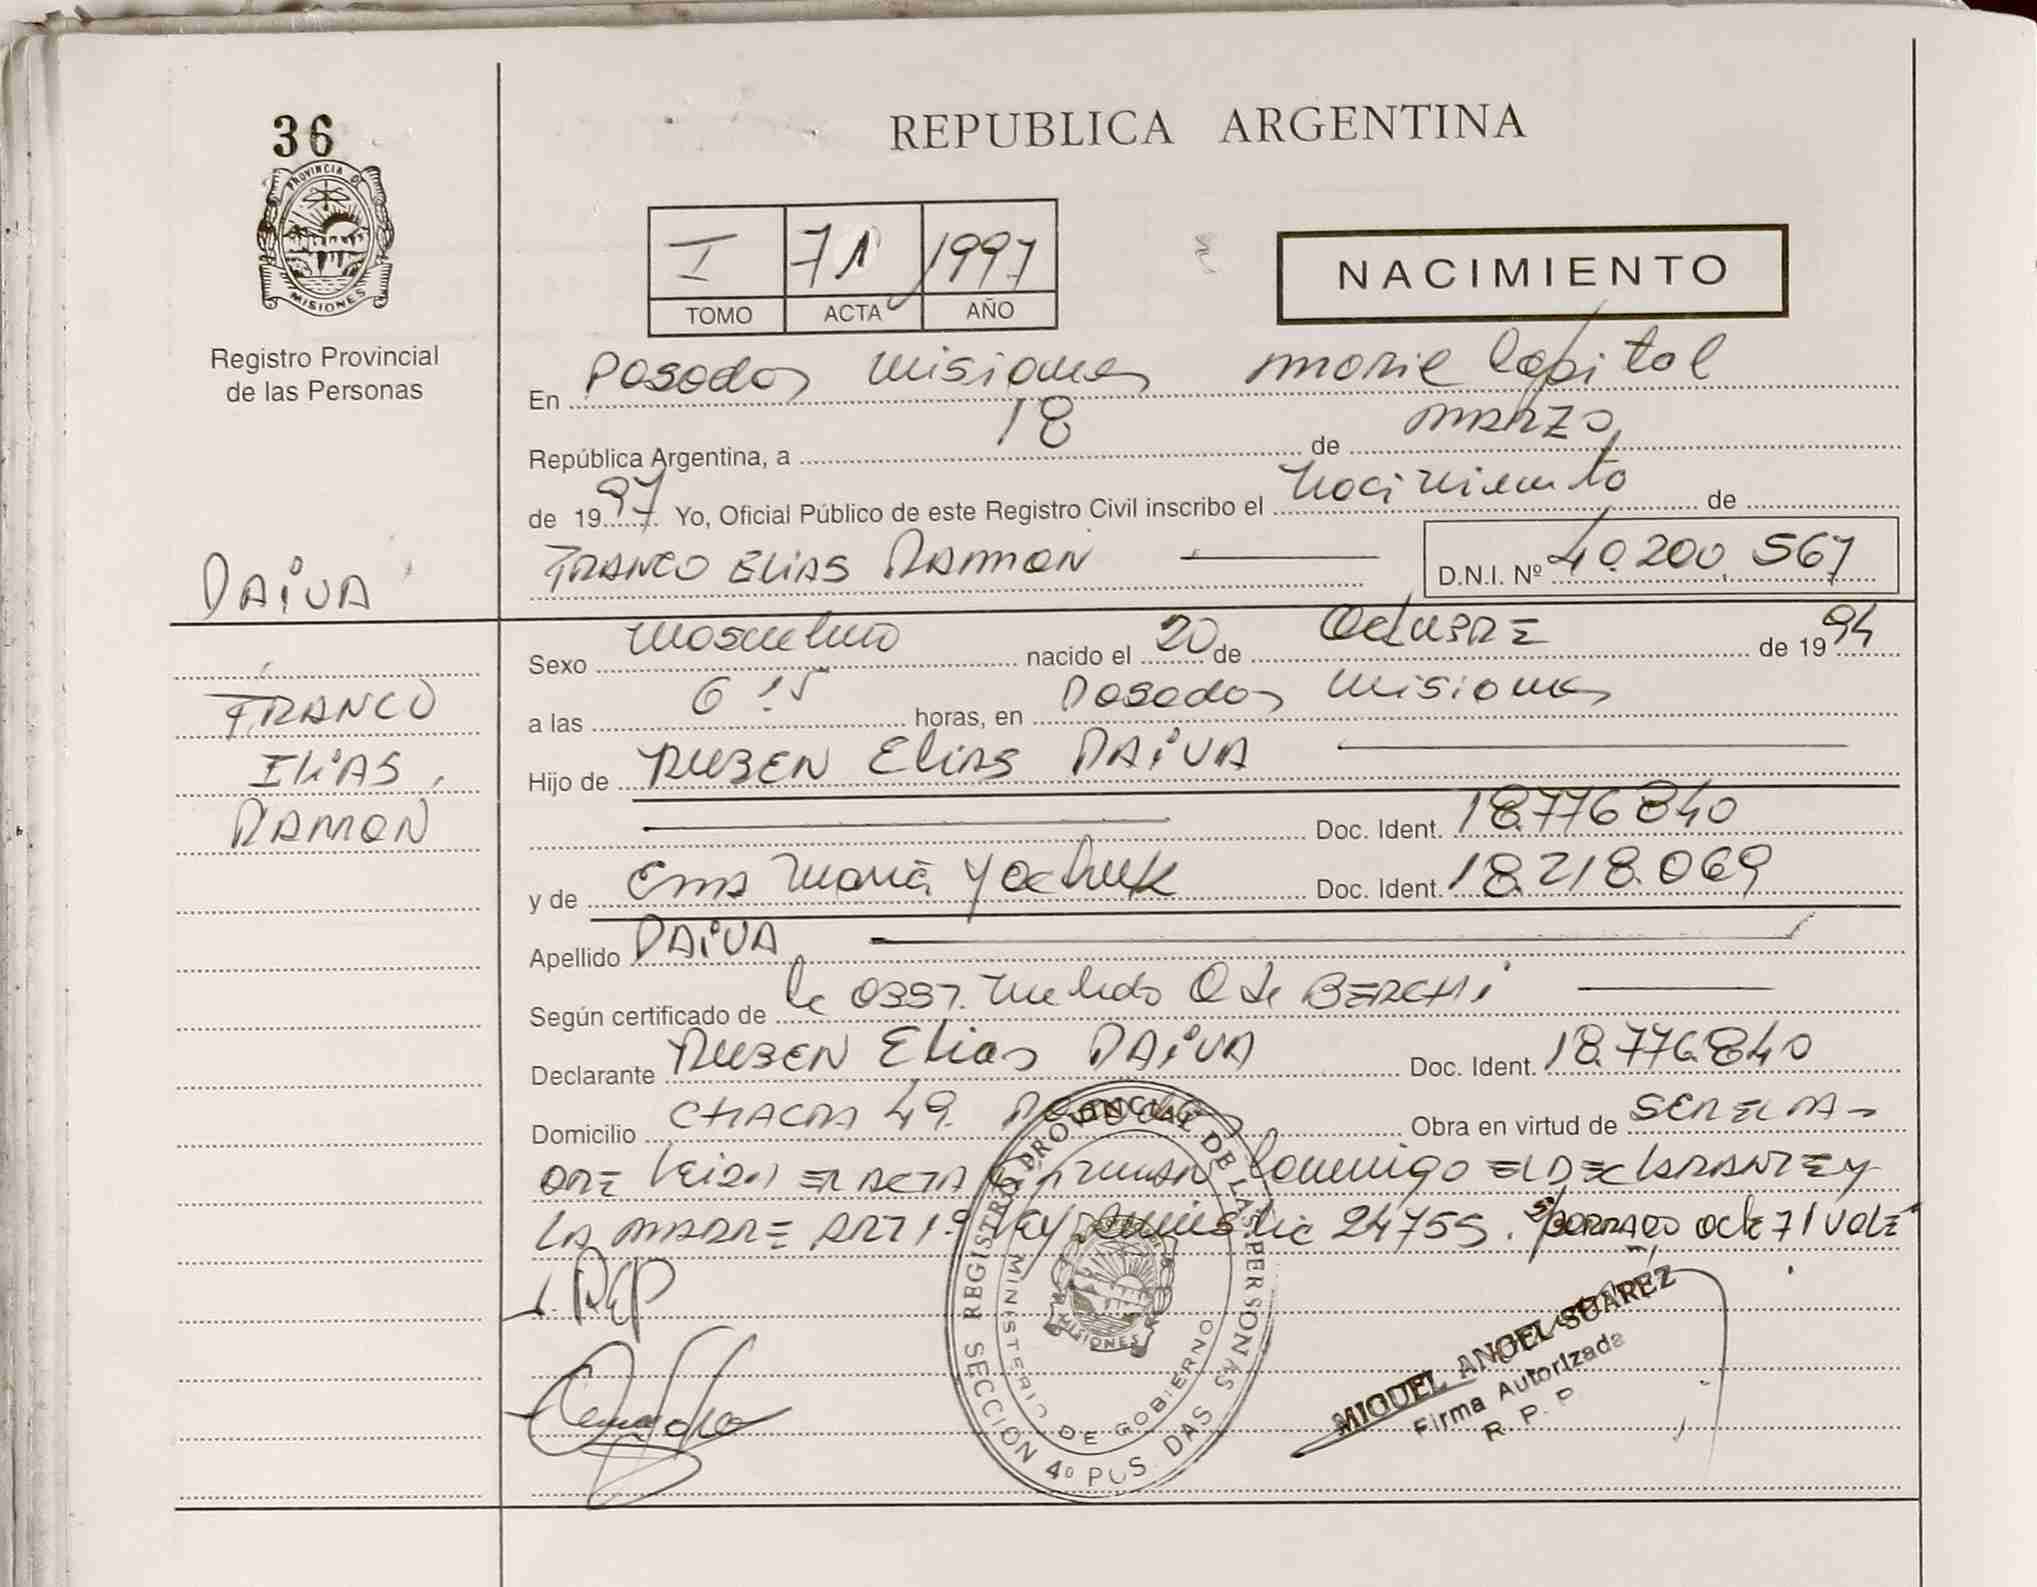 36
PROVINCIA DE
MISIONES
Registro Provincial
de las Personas
REPUBLICA ARGENTINA
I 71 1997
TOMO ACTA AÑO
NACIMIENTO
En Posadas Misiones Capital
República Argentina, a 18 de MARZO
de 1997 Yo, Oficial Público de este Registro Civil inscribo el nacimiento de
FRANCO ELIAS RAMON
D.N.I. Nº 40.200.567
DAIVA
FRANCO
ELIAS
RAMON
Sexo masculino nacido el 20 de OCTUBRE de 1994
a las 6:15 horas, en Posadas Misiones
Hijo de RUBEN ELIAS DAIVA
Doc. Ident. 18.776.840
y de Ema María Yachuk Doc. Ident. 18.218.069
Apellido DAIVA
Según certificado de
Declarante RUBEN Elias DAIVA Doc. Ident. 18.776.840
Domicilio CHACRA 49. Obra en virtud de SER EL PA-
DRE leida el ACTA firman conmigo EL DECLARANTE Y
LA MADRE ART 1º Ley 24755. S/BORRADO 71 VALE
REGISTRO PROVINCIAL DE LAS PERSONAS
MINISTERIO DE GOBIERNO
MISIONES
SECCION 4º POSADAS
MIGUEL ANGEL SUAREZ
Firma Autorizada
R. P. P